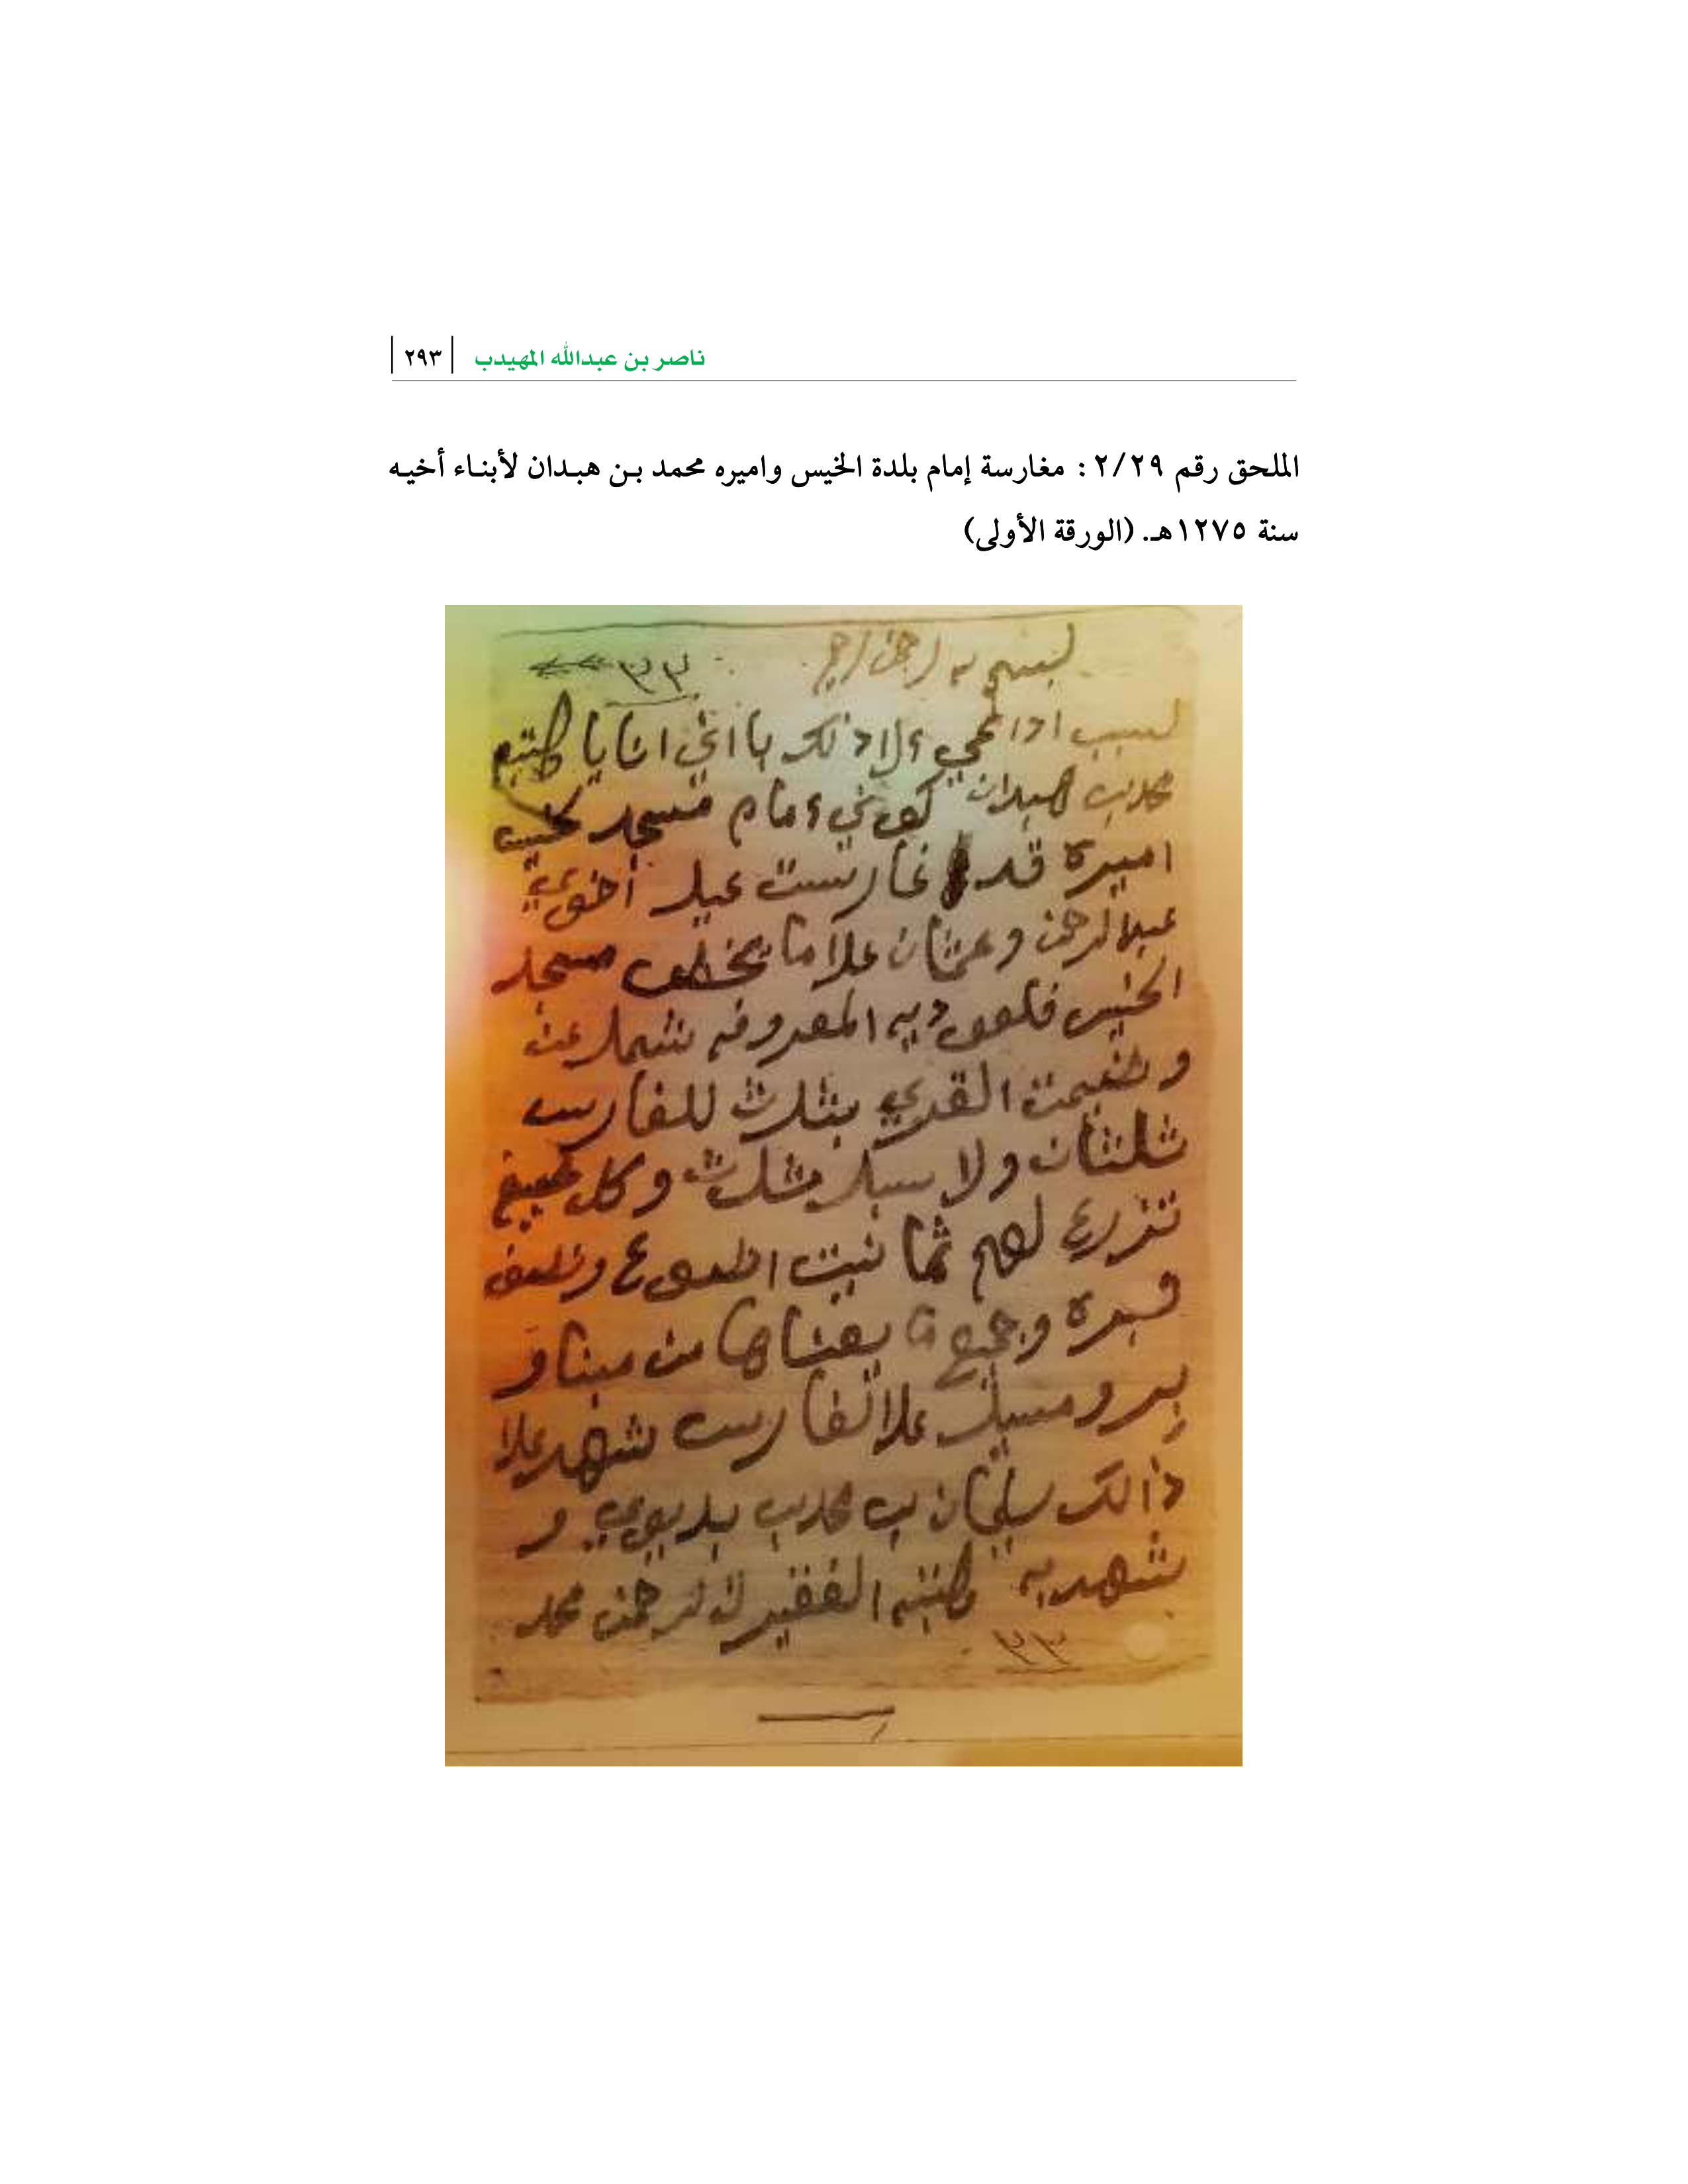 ناصر بن عبدالله المهيدب | ٢٩٣ |
الملحق رقم ٢/٢٩ : مغارسة إمام بلدة الخيس واميره محمد بن هبدان لأبناء أخيه
سنة ١٢٧٥هـ. (الورقة الأولى)
بسم الله الرحمن الرحيم ٣٣
لسبب اداعي الا ذلك باني انا يا كتبه
محمد بن هبدان كوني امام مسجد لخيس
اميره قد غارست عيال أخوي
عبدالرحمن وعثمان علا ما يخص مسجد
الخيس فلعوديه المعروفه شمال عن
القدي بثلث للغارس
ثلثان ولا سبل ثلث وكل
تزرع لهم ثما نبت
وجميع ما يعناها من مبنا و
بير ومسيل علا لغارس شهد علا
ذالك سليمان بن محمد بن بديوي و
شهد به كتبه الفقير لرحمن محمد
٣٣